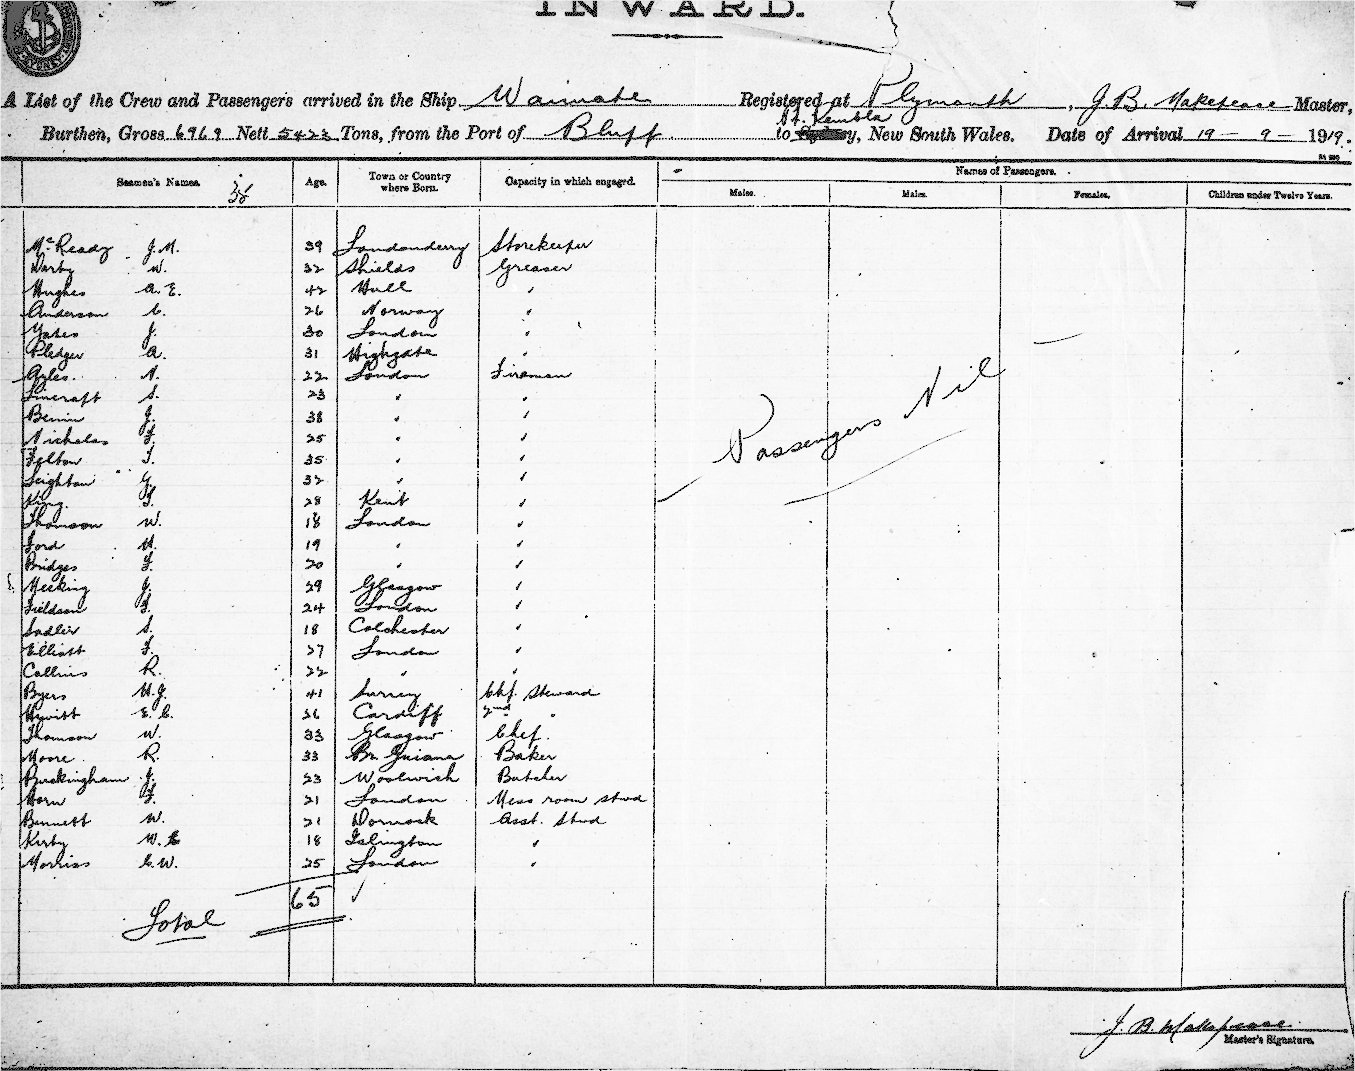 INWARD.
SYDNEY
A List of the Crew and Passengers arrived in the Ship Waimate Registered at Plymouth, J. B. Makepeace Master,
Burthen, Gross 6969 Nett 5423 Tons, from the Port of Bluff to Pt. Kembla Sydney, New South Wales. Date of Arrival 19 - 9 - 1919.
Seamen's Names. 38 Age. Town or Country where Born. Capacity in which engaged. Names of Passengers.
Males. Males. Females. Children under Twelve Years.
McReady J.M. 39 Londonderry Storekeeper
Darby W. 32 Shields Greaser
Hughes A.E. 42 Hull "
Anderson C. 26 Norway "
Yates J. 30 London "
Pledger A. 31 Highgate "
Ayles. A. 22 London Fireman
Lincraft S. 23 " "
Benin J. 38 " "
Nicholas F. 25 " "
Felton T. 35 " "
Leighton G. 32 " "
King. F. 28 Kent "
Thomson W. 18 London "
Ford H. 19 " "
Bridges F. 20 " "
Mecking J. 29 Glasgow "
Fieldson F. 24 London "
Sadler S. 18 Colchester "
Elliott F. 27 London "
Collins R. 22 " "
Byers H.J. 41 Surrey Chf. Steward
Hewitt E.C. 26 Cardiff 2nd "
Thomson W. 33 Glasgow Chef.
Moore R. 33 Br. Guiana Baker
Buckingham J. 23 Woolwich Butcher
Horn F. 21 London Mess room Stwd
Bennett W. 21 Dornock Asst. Stwd
Kirby W.C 18 Islington "
Morriss C.W. 25 London "
Total 65
Passengers Nil
J. B. Makepeace
Master's Signature.